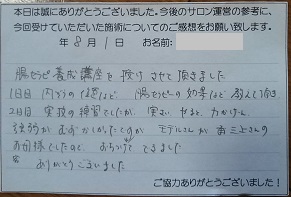 本日は誠にありがとうございました。今後のサロン運営の参考に、
今回受けていただいた施術についてのご感想をお願い致します。
年 8月 1日 お名前:
腸セラピー養成講座を受けさせて頂きました
1日目 内ぞうの
腸セラピーの効果など教えて頂き
2日目 実技の練習でしたが 実さい やると 力かげん
強弱が むずかしかったですが モデルさんが お二人さんの
お母様でしたので、 できました
ありがとうございました
ご協力ありがとうございました!